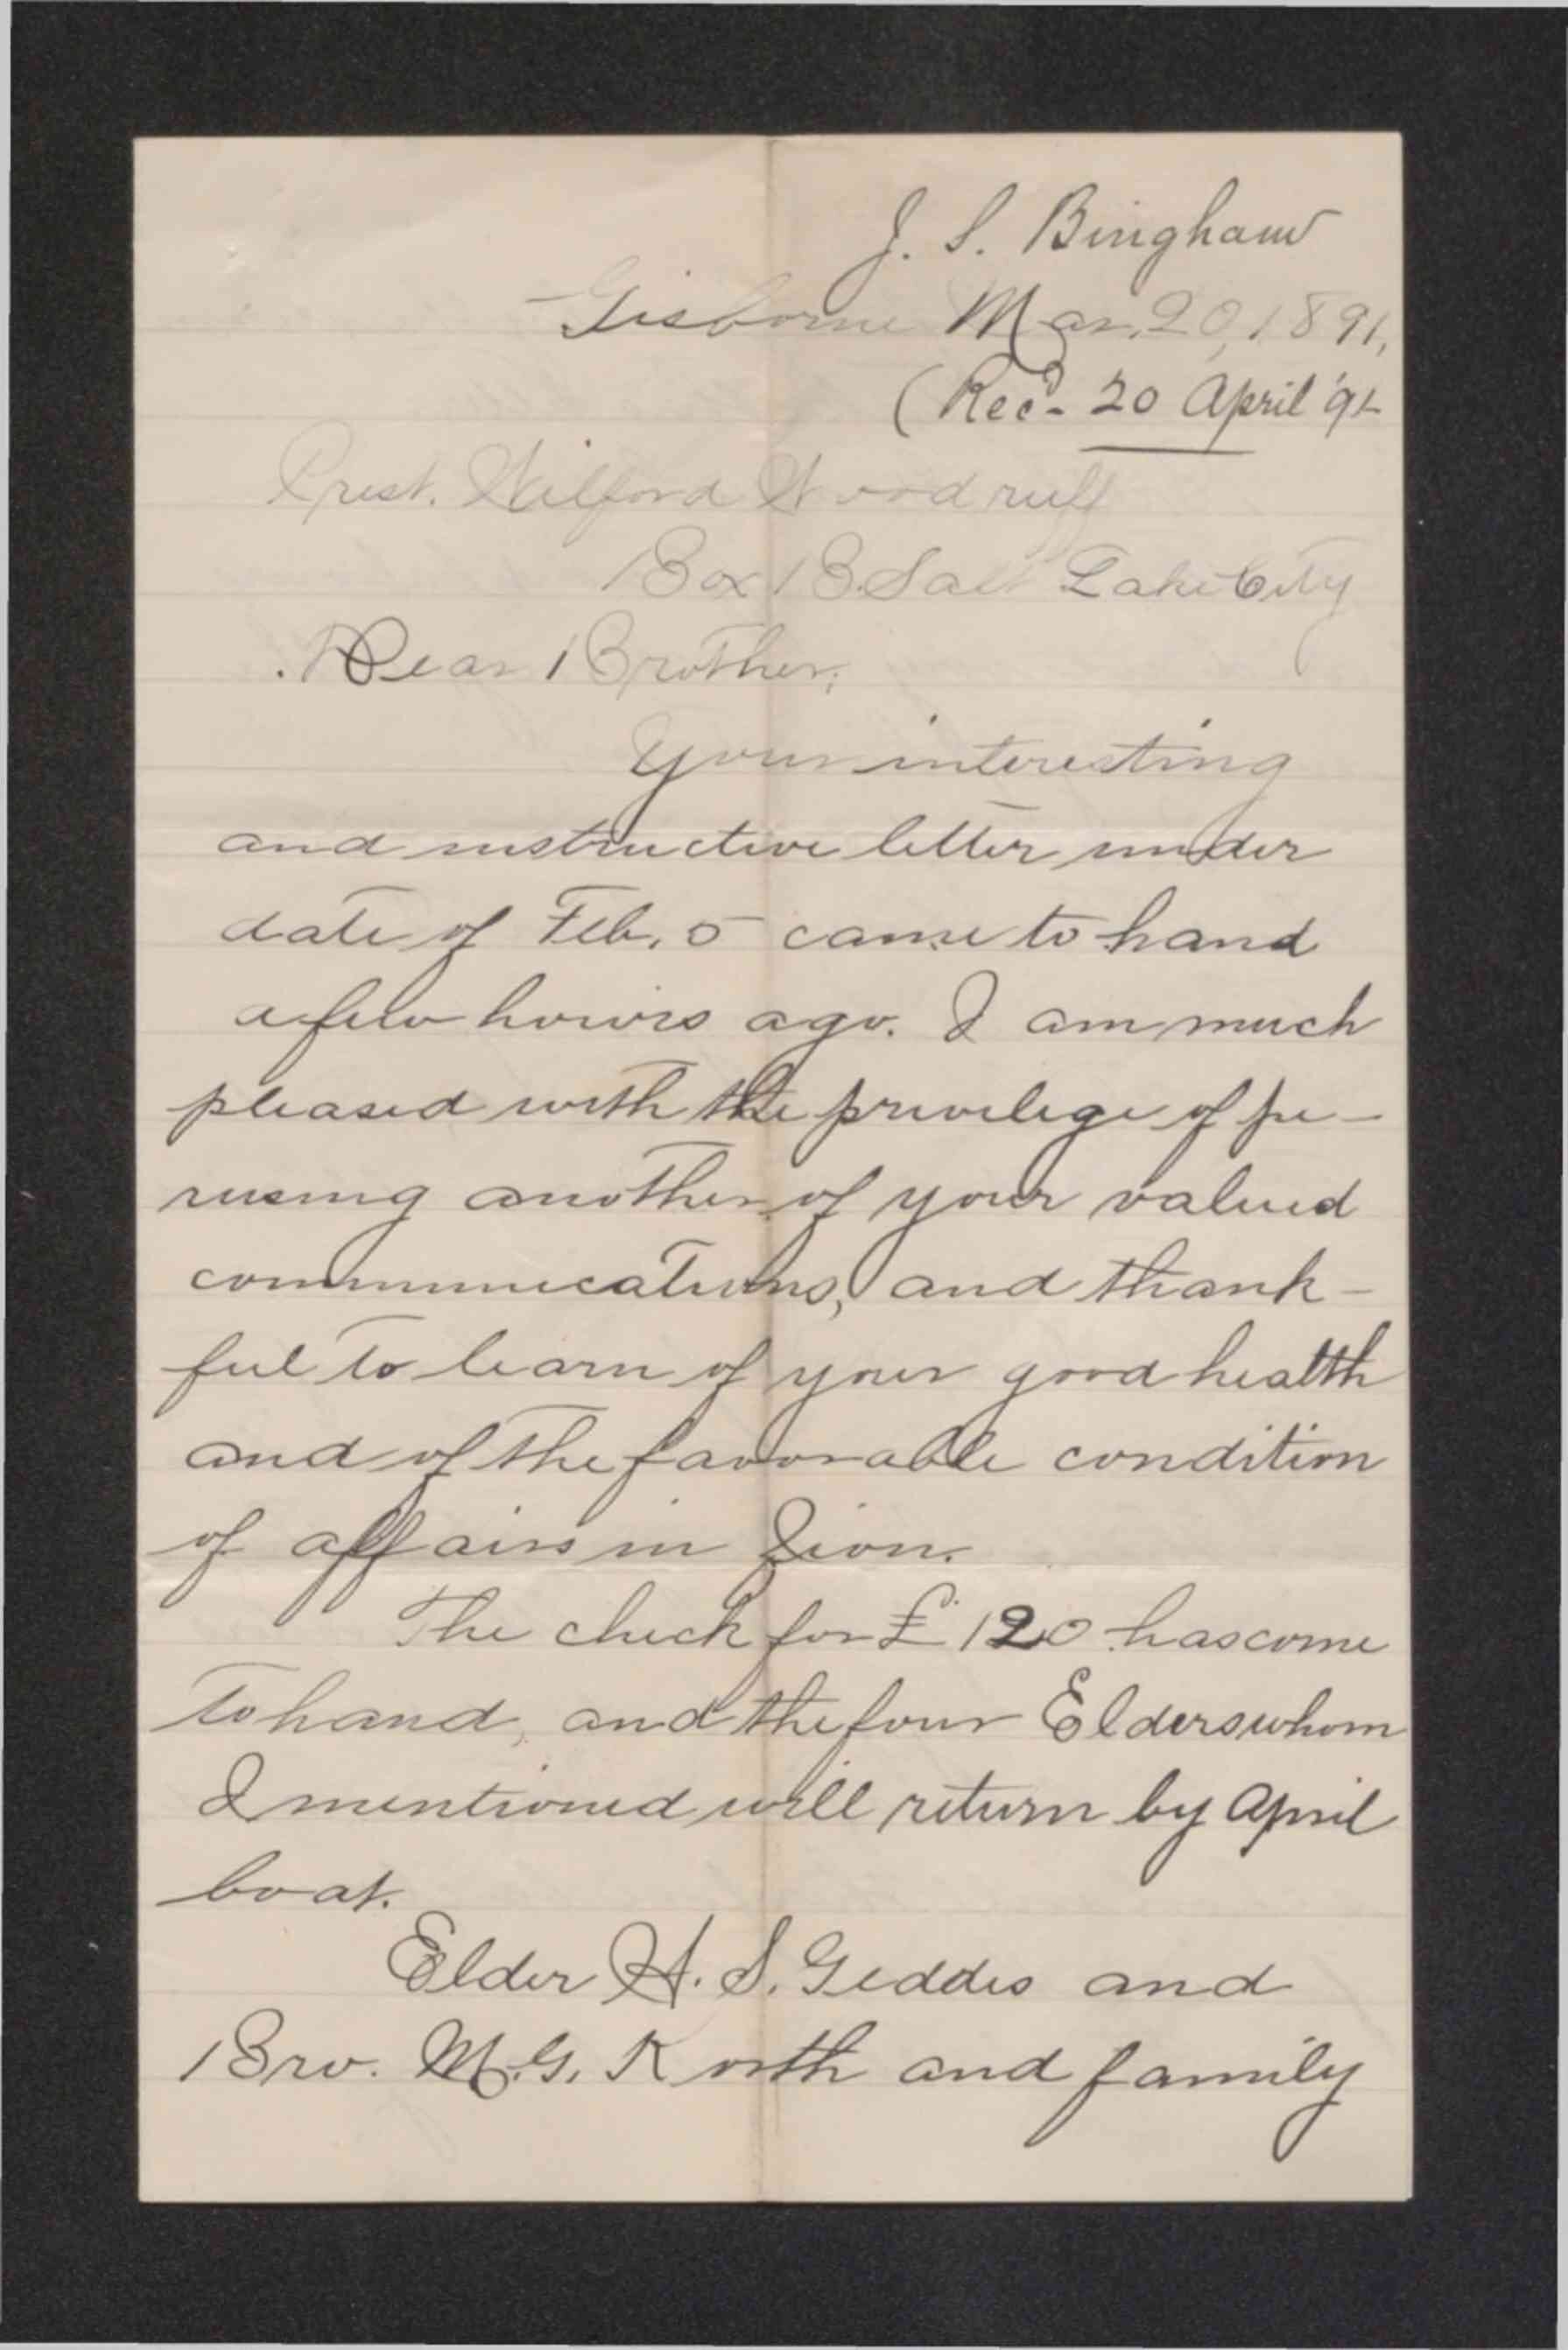 J. S. Bingham
Gisborne Mar. 20, 1891,
(Rec'd 20 April '91
Prest. Wilford Woodruff
Box B. Salt Lake City
Dear Brother;
Your interesting
and instructive letter under
date of Feb. 5 came to hand
a few hours ago. I am much
pleased with the privilege of pe-
rusing another of your valued
communications, and thank-
ful to learn of your good health
and of the favorable condition
of affairs in Zion.
The check for £120 has come
to hand, and the four Elders whom
I mentioned will return by April
boat.
Elder H. S. Geddes and
Bro. M. G. and family